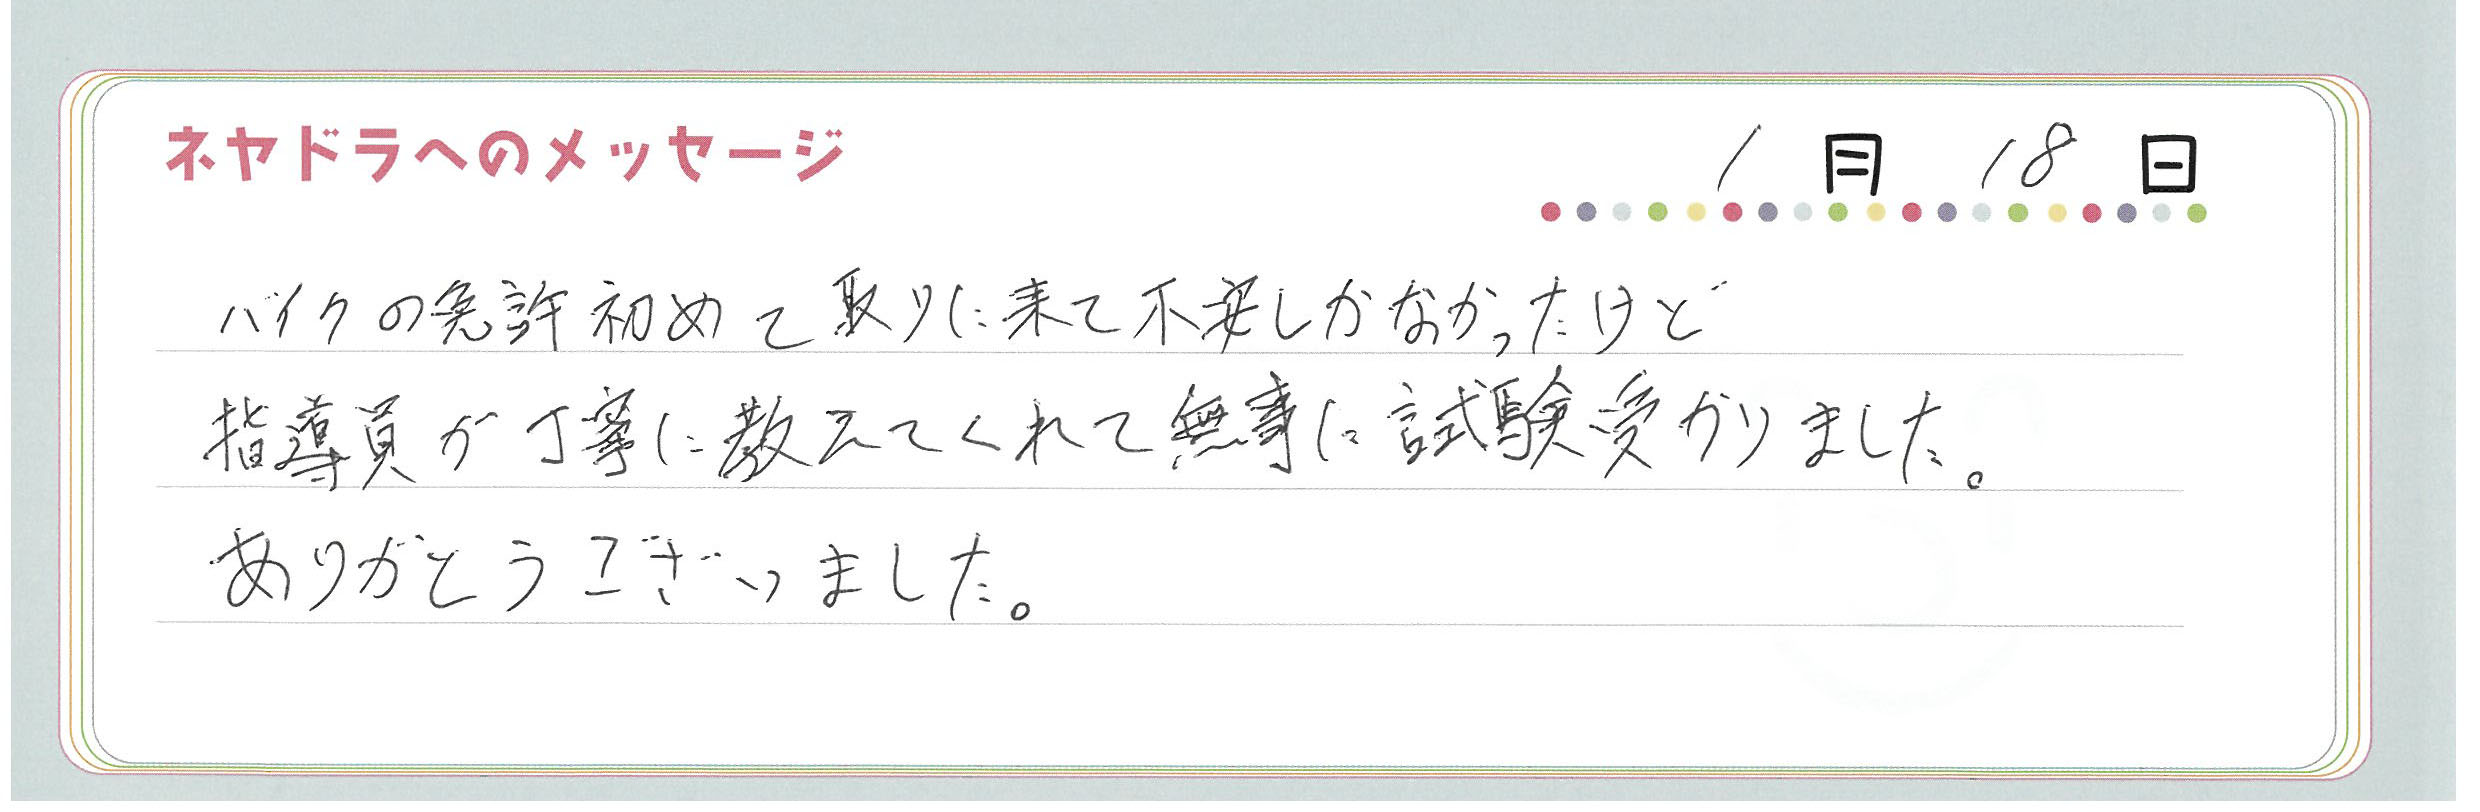 ネヤドラへのメッセージ
1月 18日
バイクの免許初めて取りに来て不安しかなかったけど
指導員が丁寧に教えてくれて無事に試験受かりました。
ありがとうございました。